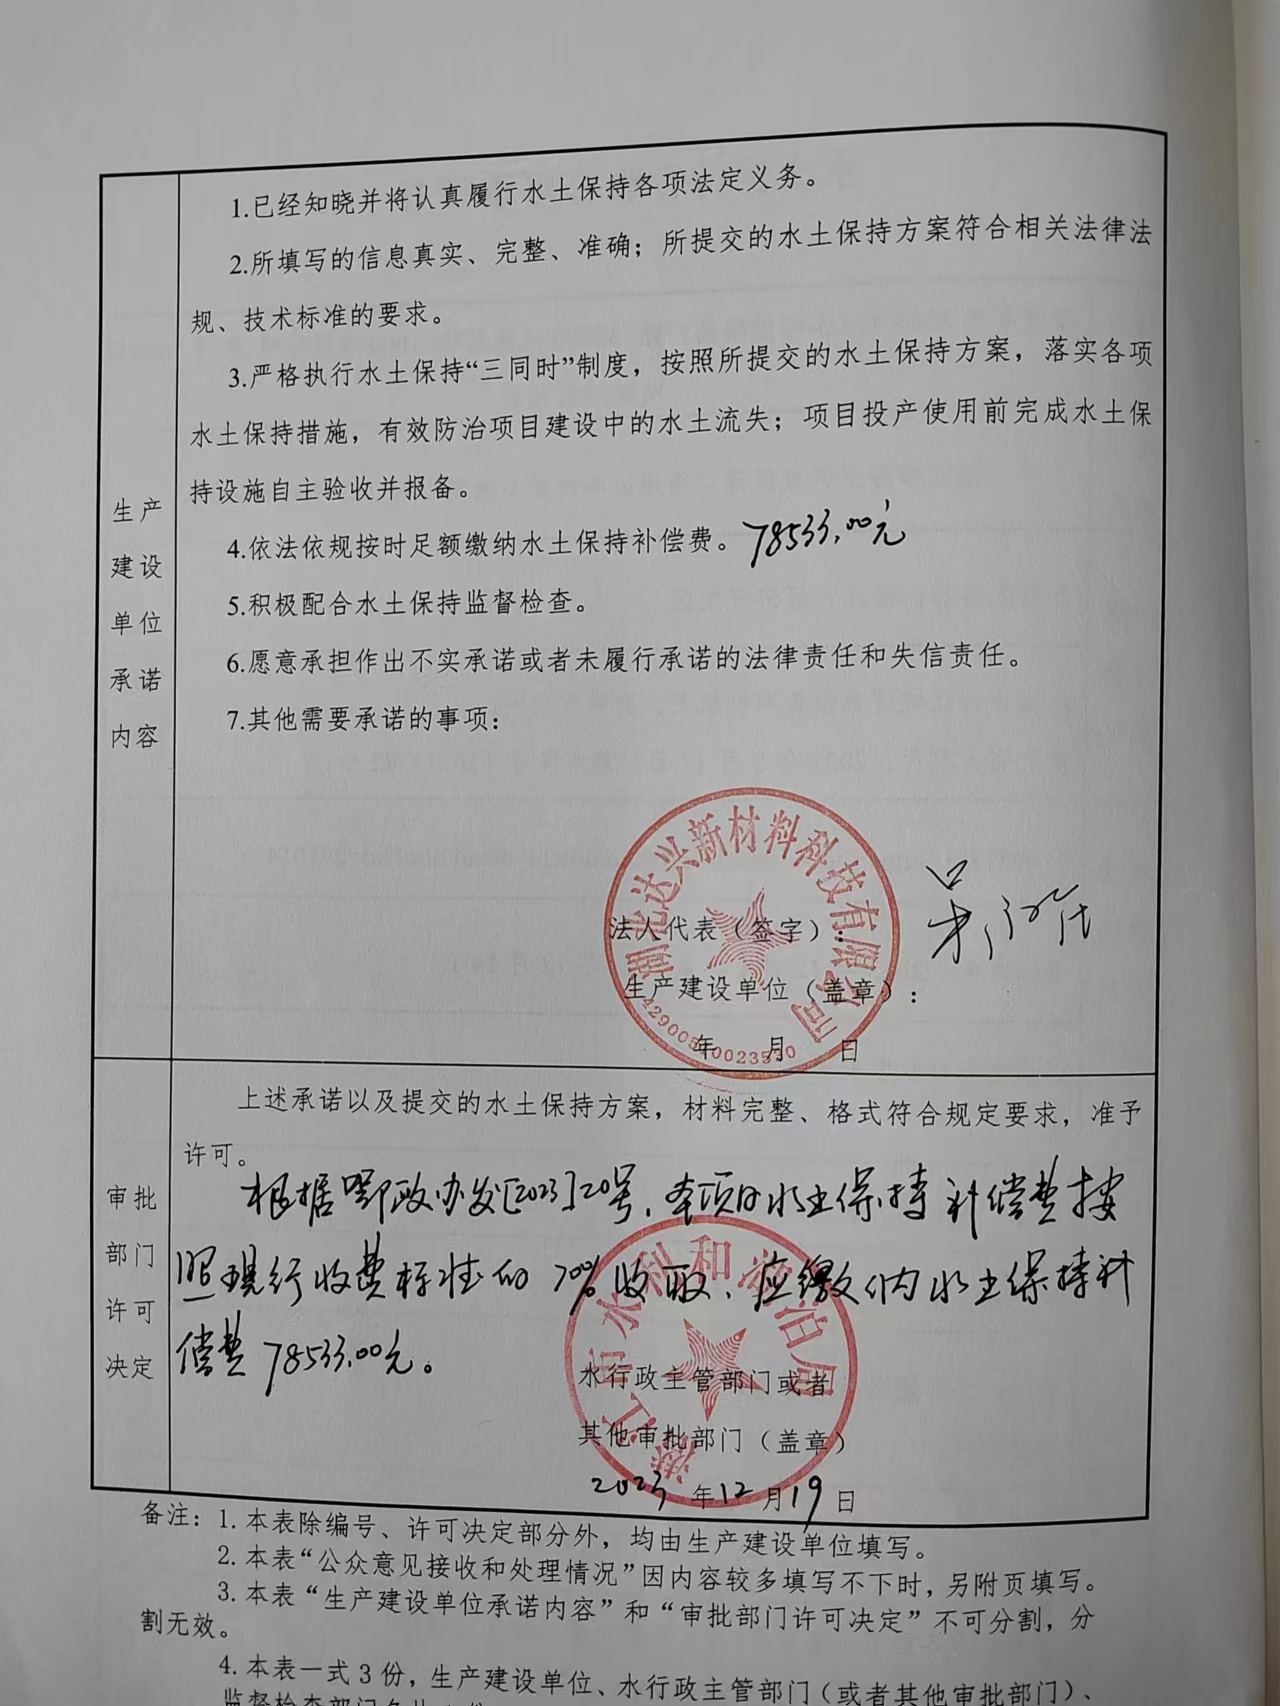 1.已经知晓并将认真履行水土保持各项法定义务。
2.所填写的信息真实、完整、准确；所提交的水土保持方案符合相关法律法
规、技术标准的要求。
3.严格执行水土保持“三同时”制度，按照所提交的水土保持方案，落实各项
水土保持措施，有效防治项目建设中的水土流失；项目投产使用前完成水土保
持设施自主验收并报备。
生产
建设
单位
承诺
内容
4.依法依规按时足额缴纳水土保持补偿费。78533.00元
5.积极配合水土保持监督检查。
6.愿意承担作出不实承诺或者未履行承诺的法律责任和失信责任。
7.其他需要承诺的事项：
湖北达兴新材料科技有限公司
法人代表（签字）：
生产建设单位（盖章）：
年 月 日
上述承诺以及提交的水土保持方案，材料完整、格式符合规定要求，准予
许可。
审批
部门
许可
决定
根据鄂政办发[2023]20号，本项目水土保持补偿费按
照现行收费标准的70%收取，应缴纳水土保持补
偿费78533.00元。
潜江市水利和湖泊局
水行政主管部门或者
其他审批部门（盖章）
2023年12月19日
备注：1.本表除编号、许可决定部分外，均由生产建设单位填写。
2.本表“公众意见接收和处理情况”因内容较多填写不下时，另附页填写。
3.本表“生产建设单位承诺内容”和“审批部门许可决定”不可分割，分
割无效。
4.本表一式3份，生产建设单位、水行政主管部门（或者其他审批部门）、